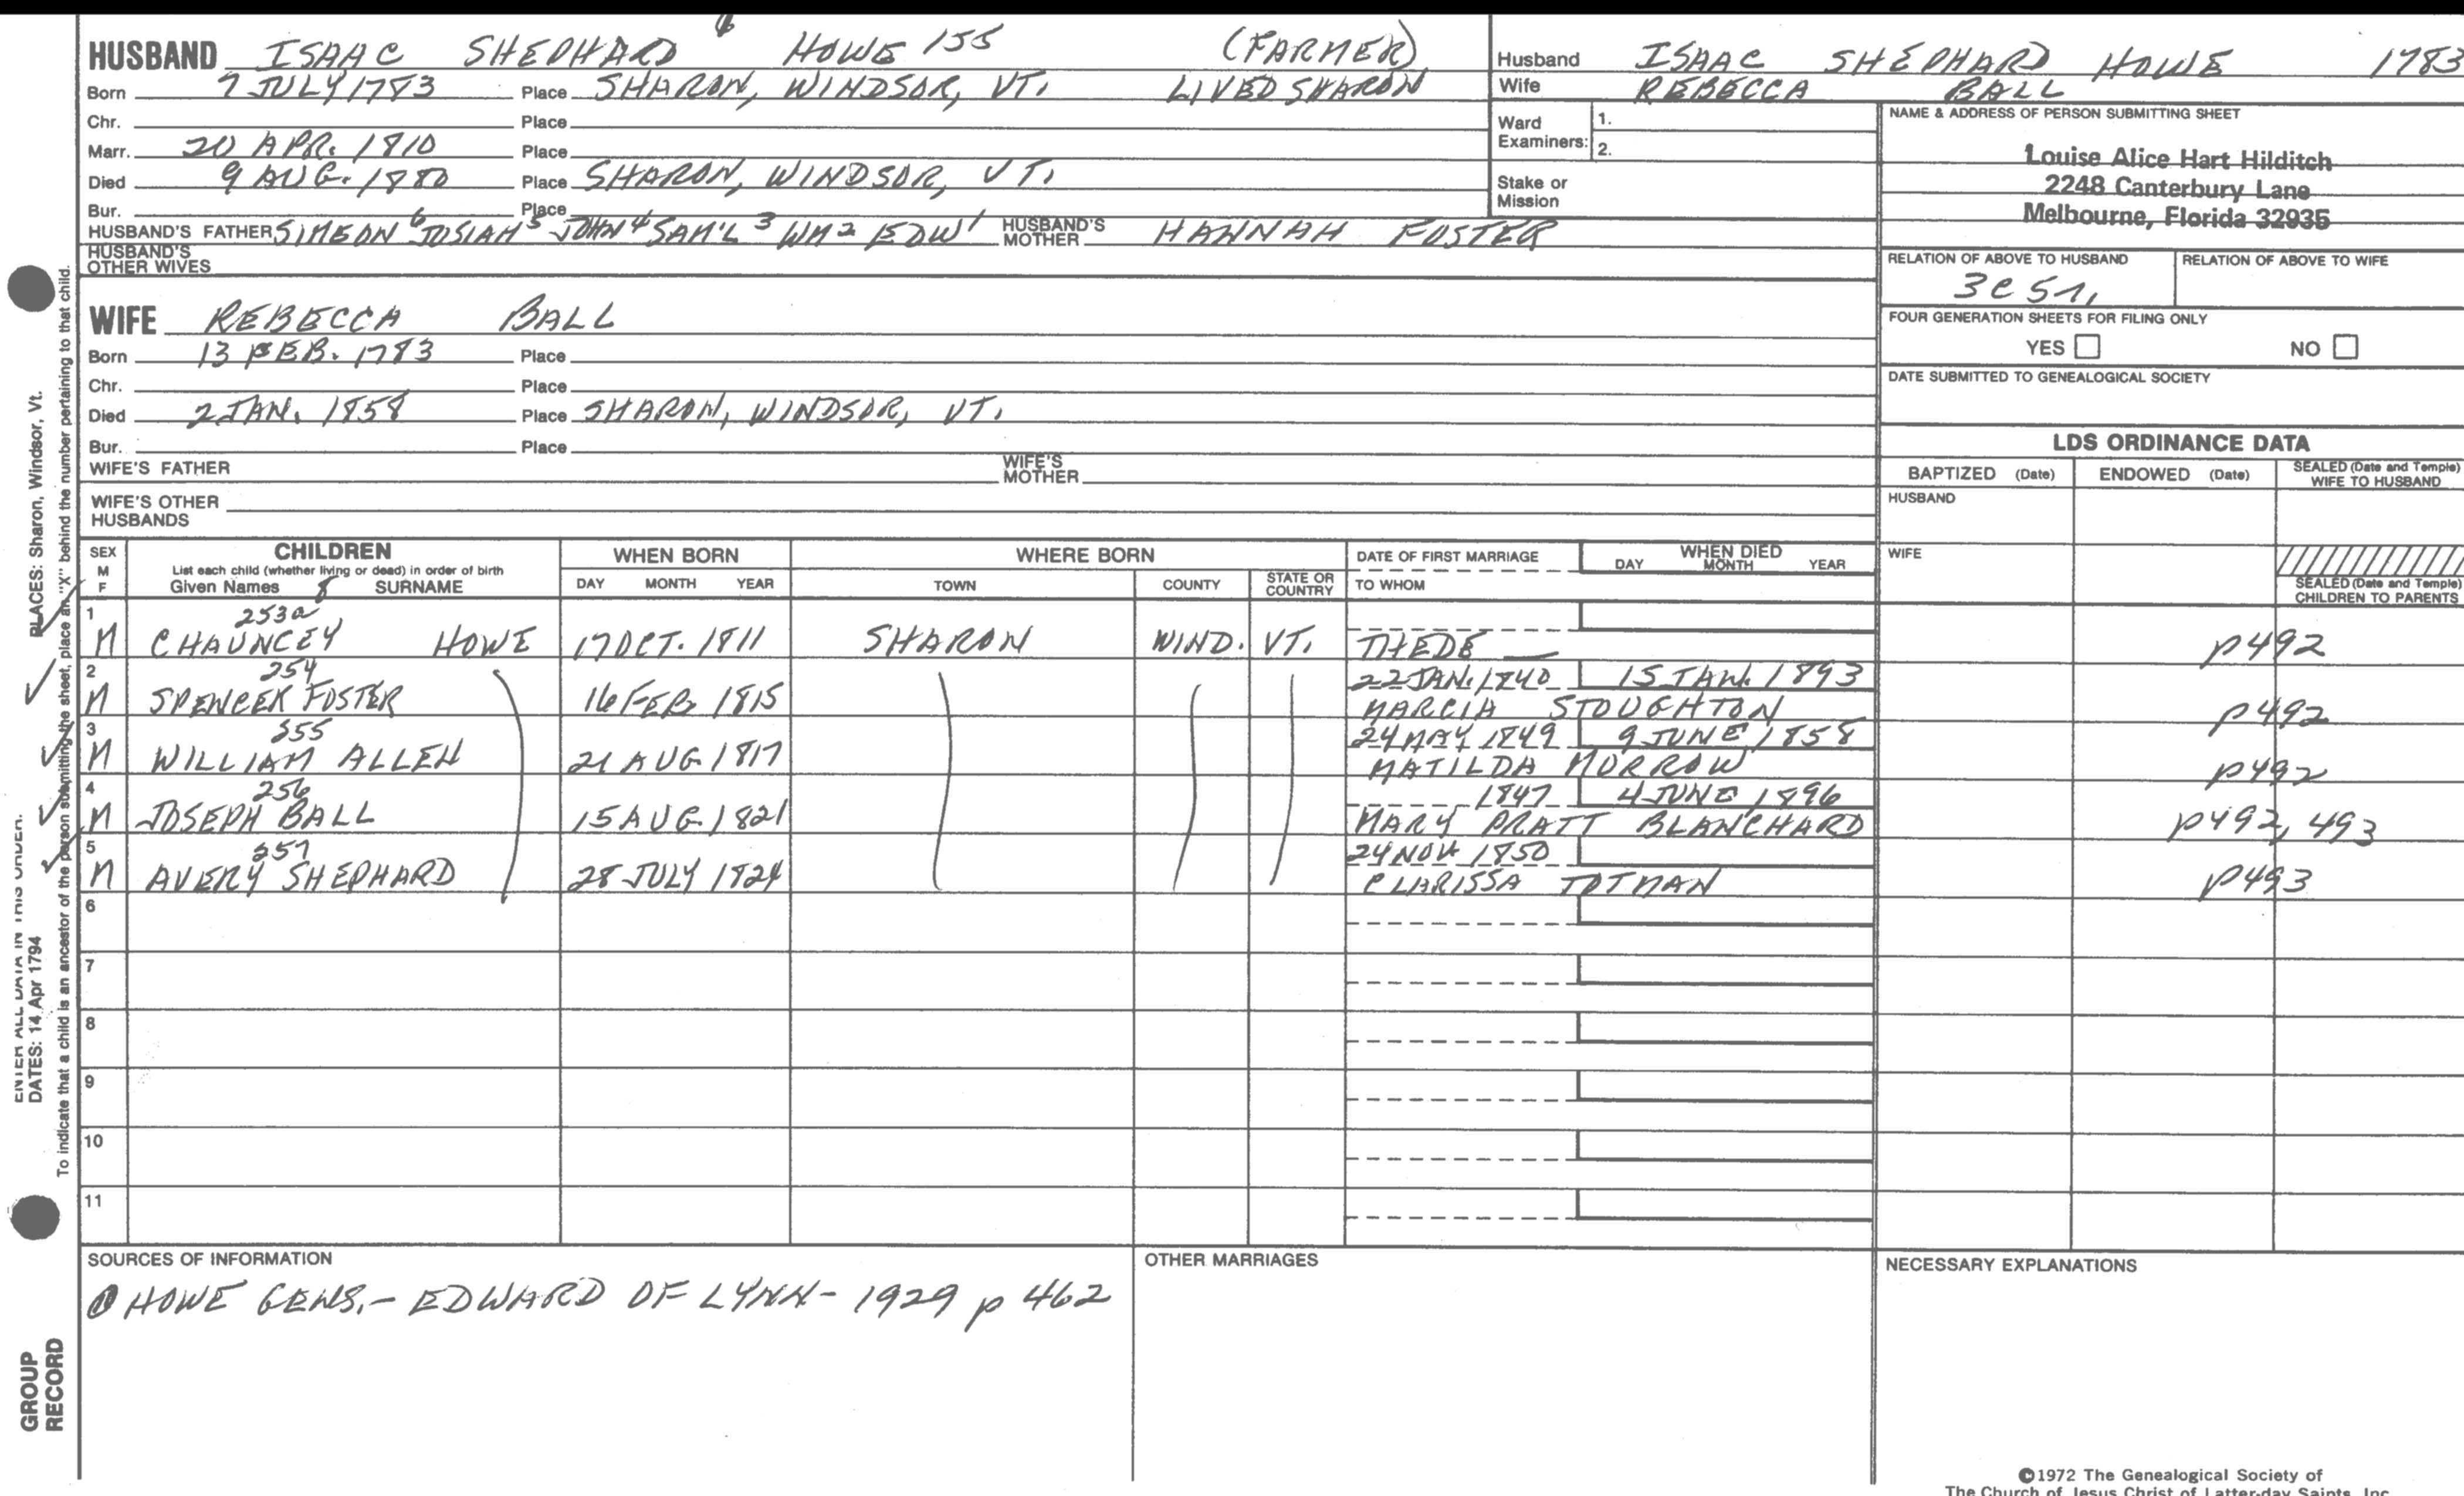 HUSBAND ISAAC SHEPHARD HOWE 155 (FARMER)
Born 7 JULY 1783 Place SHARON, WINDSOR, VT. LIVED SHARON
Chr. Place
Marr. 20 APR. 1810 Place
Died 9 AUG. 1880 Place SHARON, WINDSOR, VT.
Bur. Place
HUSBAND'S FATHER SIMEON 6 JOSIAH 5 JOHN 4 SAM'L 3 WM 2 EDW 1 HUSBAND'S MOTHER HANNAH FOSTER
HUSBAND'S OTHER WIVES
WIFE REBECCA BALL
Born 13 FEB. 1783 Place
Chr. Place
Died 2 JAN. 1858 Place SHARON, WINDSOR, VT.
Bur. Place
WIFE'S FATHER WIFE'S MOTHER
WIFE'S OTHER HUSBANDS
Husband ISAAC SHEPHARD HOWE 1783
Wife REBECCA BALL
Ward Examiners: 1.
2.
Stake or Mission
NAME & ADDRESS OF PERSON SUBMITTING SHEET
Louise Alice Hart Hilditch
2248 Canterbury Lane
Melbourne, Florida 32935
RELATION OF ABOVE TO HUSBAND RELATION OF ABOVE TO WIFE
FOUR GENERATION SHEETS FOR FILING ONLY
YES NO
DATE SUBMITTED TO GENEALOGICAL SOCIETY
LDS ORDINANCE DATA
BAPTIZED (Date) ENDOWED (Date) SEALED (Date and Temple) WIFE TO HUSBAND
HUSBAND
WIFE
SEALED (Date and Temple) CHILDREN TO PARENTS
SEX M F
CHILDREN
List each child (whether living or dead) in order of birth
Given Names 8 SURNAME
WHEN BORN
DAY MONTH YEAR
WHERE BORN
TOWN COUNTY STATE OR COUNTRY
DATE OF FIRST MARRIAGE
TO WHOM
WHEN DIED
DAY MONTH YEAR
1 253a
M CHAUNCEY HOWE 17 OCT. 1811 SHARON WIND. VT. THEDE — p492
2 254 22 JAN. 1840 15 JAN. 1893
M SPENCER FOSTER 16 FEB. 1815 MARCIA STOUGHTON p492
3 255 24 MAY 1849 9 JUNE 1858
M WILLIAM ALLEN 21 AUG 1817 MATILDA MORROW p492
4 256 1847 4 JUNE 1896
M JOSEPH BALL 15 AUG. 1821 MARY PRATT BLANCHARD p492, 493
5 257 24 NOV 1850
M AVERY SHEPHARD 28 JULY 1824 CLARISSA TOTMAN p493
6
7
8
9
10
11
SOURCES OF INFORMATION
① HOWE GENS. - EDWARD OF LYNN - 1929 p 462
OTHER MARRIAGES
NECESSARY EXPLANATIONS
©1972 The Genealogical Society of
The Church of Jesus Christ of Latter-day Saints, Inc.
To indicate that a child is an ancestor of the person submitting the sheet, place an "X" behind the number pertaining to that child.
PLACES: Sharon, Windsor, Vt.
ENTER ALL DATA IN THIS ORDER:
DATES: 14 Apr 1794
GROUP
RECORD